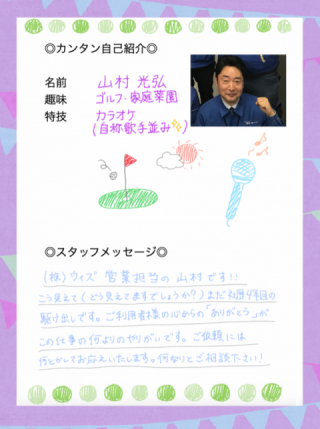 ◎カンタン自己紹介◎
名前 山村 光弘
趣味 ゴルフ・家庭菜園
特技 カラオケ
(自称歌手並み✨)
◎スタッフメッセージ◎
(株)ウィズ 営業担当の山村です!!
こう見えて(どう見えてますでしょうか?)まだ社歴4年目の
駆け出しです。ご利用者様の心からの「ありがとう」が
この仕事の何よりのやりがいです。ご依頼には
何とかしてお応えいたします。何なりとご相談下さい!